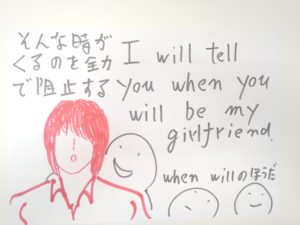 そんな時が
くるのを全力
で阻止する
I will tell
you when you
will be my
girlfriend.
when willのほうだ